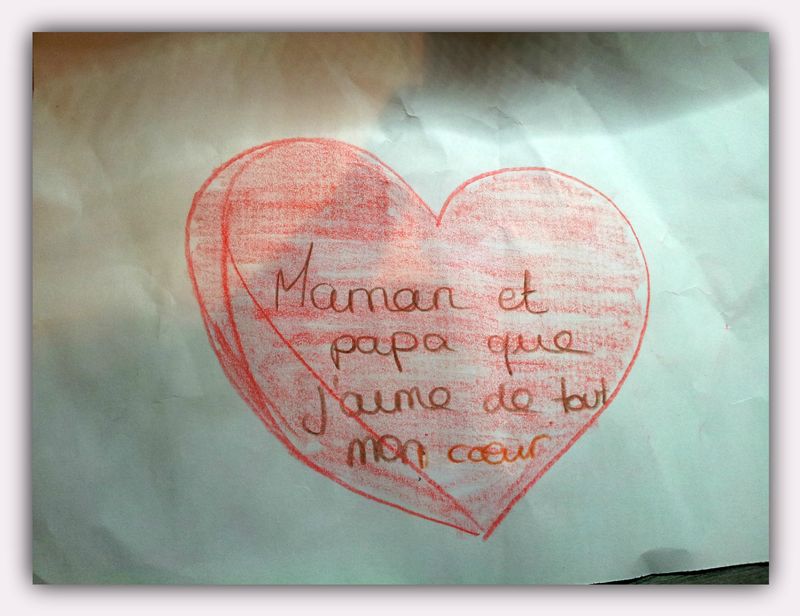 Maman et
papa que
j'aime de tout
mon cœur